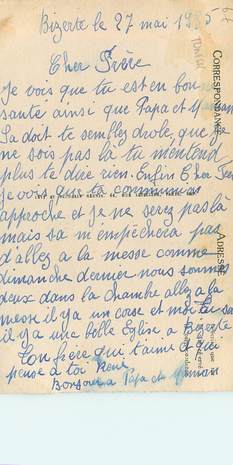 Bizerte le 27 mai 19
TUNISIE
CORRESPONDANCE
Cher Frère
Je vois que tu est en bonne
santé ainsi que Papa et Maman
Sa doit te semblez drole, que je
ne sois pas la tu mentend
plus te dire rien. Enfin Cher Frère
je vois que ta communion
approche et je ne serez pas là
mais sa n'empêchera pas
d'allez a la messe comme
dimanche dernier nous sommes
deux dans la chambre allez a la
messe il y a un corse et moi
il y a une belle Eglise a Bizerte
Ton frère qui t'aime et qui
pense a toi René
Bonjour a Papa et Maman
ADRESSE